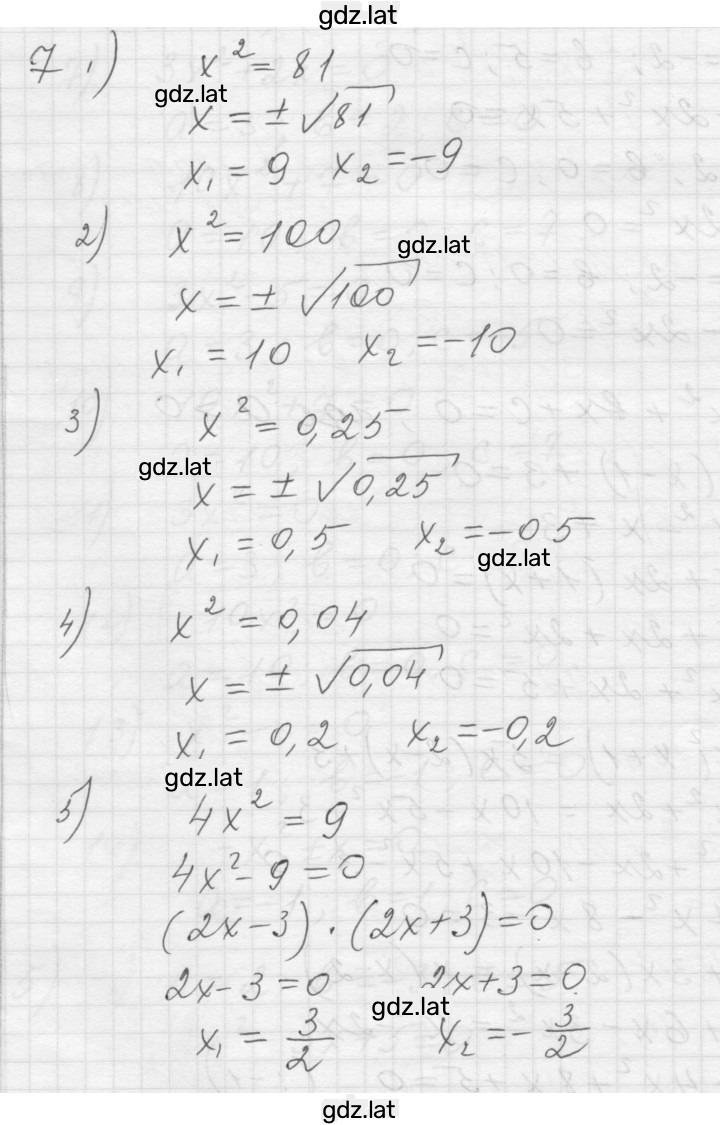 gdz.lat
7 1) x² = 81
gdz.lat
x = ± √81
x₁ = 9 x₂ = -9
2) x² = 100
gdz.lat
x = ± √100
x₁ = 10 x₂ = -10
3) x² = 0,25
gdz.lat
x = ± √0,25
x₁ = 0,5 x₂ = -0 5
gdz.lat
4) x² = 0,04
x = ± √0,04
x₁ = 0,2 x₂ = -0,2
gdz.lat
5) 4x² = 9
4x² - 9 = 0
(2x - 3) · (2x + 3) = 0
2x - 3 = 0 2x + 3 = 0
gdz.lat
x₁ = 3/2 x₂ = - 3/2
gdz.lat